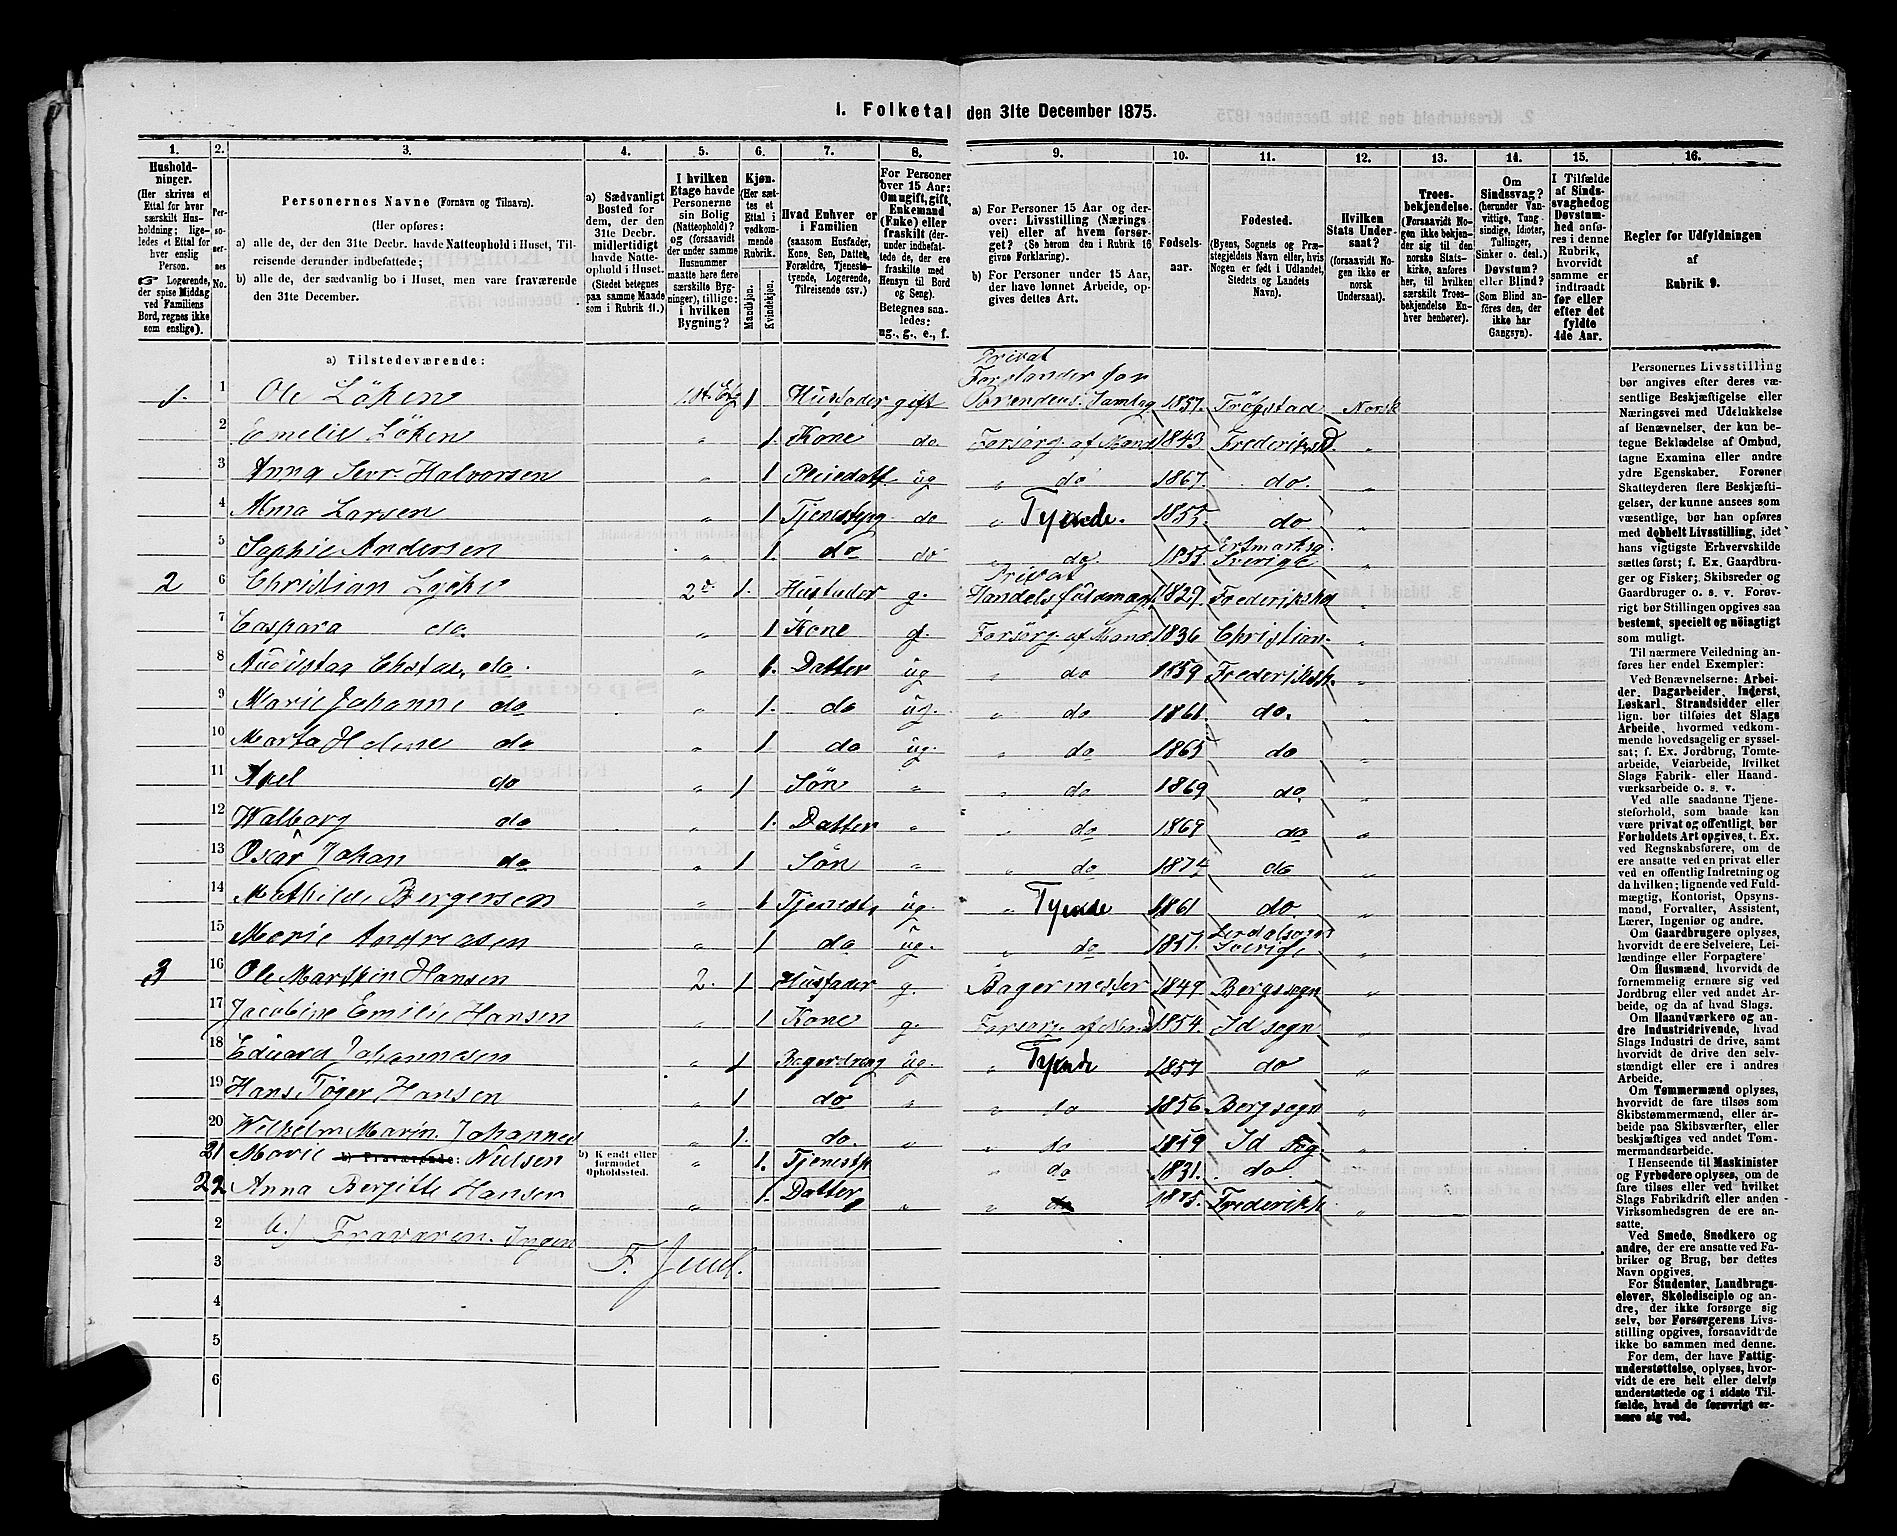 1. Folketal den 31te December 1875.
1. 2. 3. 4. 5. 6. 7. 8. 9. 10. 11. 12. 13. 14. 15. 16.
Hushold-
ninger.
(Her skrives et
Ettal for hver
særskilt Hus-
holdning; lige-
ledes et Ettal for
hver enslig
Person.
Logerende,
der spise Middag
ved Familiens
Bord, regnes ikke
som enslige).
Per-
so-
ner-
nes
No.
Personernes Navne (Fornavn og Tilnavn).
(Her opføres:
a) alle de, der den 31te Decbr. havde Natteophold i Huset, Til-
reisende derunder indbefattede;
b) alle de, der sædvanlig bo i Huset, men vare fraværende
den 31te December.
a) Sædvanligt
Bosted for
dem, der den
31te Decbr.
midlertidigt
havde Natte-
ophold i Huset.
(Stedet betegnes
paa samme Maade
som i Rubrik 11.)
I hvilken
Etage havde
Personerne
sin Bolig
(Natteophold)?
og (forsaavidt
der under samme
Husnummer
maatte høre flere
særskilte Byg-
ninger), tillige:
i hvilken
Bygning?
Kjøn.
(Her sæt-
tes et
Ettal i
vedkom-
mende
Rubrik.
Mandkjøn.
Kvindekjøn.
Hvad Enhver er
i Familien
(saasom Husfader,
Kone, Søn, Datter,
Forældre, Tjeneste-
tyende, Logerende,
Tilreisende osv.)
For Personer
over 15 Aar:
Om ugift, gift,
Enkemand
(Enke) eller
fraskilt (der-
under indbefat-
tede de, der
ere fraskilte med
Hensyn til Bord
og Seng).
Betegnes saa-
ledes:
ug., g., e., f.
a) For Personer 15 Aar og der-
over: Livsstilling (Nærings-
vei) eller af hvem forsør-
get? (Se herom den i Rubrik 16
givne Forklaring).
b) For Personer under 15 Aar,
der have lønnet Arbeide, op-
gives dettes Art.
Fødsels-
aar.
Fødested.
(Byens, Sognets og Præ-
stegjeldets Navn eller, hvis
Nogen er født i Udlandet,
Stedets og Landets
Navn).
I hvilken
Stats Under-
saat?
(forsaavidt No-
gen ikke er
norsk
Undersaat).
Troes-
bekjendelse.
(Forsaavidt No-
gen ikke bekjen-
der sig til den
norske Stats-
kirke, anføres
her, til hvilken
særskilt Troes-
bekjendelse En-
hver henhører).
Om
Sindssvag?
(herunder Van-
vittige, Tung-
sindige, Idioter,
Tullinger,
Sinker o. desl.)
Døvstum?
eller Blind?
(Som Blind an-
føres den, der
ikke har
Gangsyn).
I Tilfælde
af Sinds-
svaghed og
Døvstum-
hed anfø-
res i denne
Rubrik,
hvorvidt
samme er
indtraadt
før eller
efter det
fyldte
4de Aar.
Regler for Udfyldningen
af
Rubrik 9.
a) Tilstedeværende:
Privat
Forstander for
1. 1 Ole Löken 1 Husfader gift 1857. Trögstad Norsk
2 Emelie Löken " 1. Kone do. Forsörg. af Mand 1843. Frederiksst. "
3 Anna Sevr. Halvorsen " 1 Pleiedatt ug " do 1867. do. "
4 Alma Larsen " 1 do " Tyende. 1855 do "
5 Sophie Andersen " 1. do do " do. 1855 Sverige "
Privat
2 6 Christian Lycke 2. 1. Husfader g. 1829. "
7 Caspara do. " 1 Kone g. Forsörg. af Mand 1836 Christian. "
8 do. " 1. Datter ug " do 1859 "
9 Marie Johanne do " 1. do ug. " do 1861. do. "
10 do " 1 do ug. " do 1865 do "
11 Axel do " 1 Søn " " do 1869 do. "
12 Walborg do " 1. Datter " " do 1869 do "
13 Oscar Johan do " 1 Søn " " do 1874 do "
14 Mathilde Bergersen " 1 Tjenest. ug. " Tyende 1861 do. "
15 Marie Andreasen " 1 do ug. " do 1857. Sverige "
3 16 Ole Martin Hansen 2. 1 Husfader g. Bagermester 1849 Bergssogn "
17 Jacobine Emilie Hansen " 1 Kone g. Forsörg. af Mand 1854. Id sogn "
18 Eduard Johannesen " 1 Bagerdreng ug. " Tyende 1857 do "
19 Hans Töger Hansen " 1 do " " do 1856 Bergsogn "
20 Wilhelm Marin. Johannes " 1. do. " " do 1859 Id Sog. "
b) Fraværende:
b) Kjendt eller
formodet
Opholdssted.
21 Marie Nielsen " 1. Tjenestp " do 1831. do. "
22 Anna Bergitte Hansen " 1. Datter " " do 1875. "
2 b) Fraværen. Ingen
3
4
5
6
Personernes Livsstilling
bør angives efter deres væ-
sentlige Beskjæftigelse eller
Næringsvei med Udelukkelse
af Benævnelser, der kun be-
tegne Beklædelse af Ombud,
tagne Examina eller andre
ydre Egenskaber. Forener
Skatteyderen flere Beskjæfti-
gelser, der kunne ansees som
væsentlige, bør han opføres
med dobbelt Livsstilling, idet
hans vigtigste Erhvervskilde
sættes først; f. Ex. Gaardbru-
ger og Fisker; Skibsreder og
Gaardbruger o. s. v. Forøv-
rigt bør Stillingen opgives saa
bestemt, specielt og nøiagtigt
som muligt.
Til nærmere Veiledning an-
føres her endel Exempler:
Ved Benævnelserne: Arbei-
der, Dagarbeider, Inderst,
Løskarl, Strandsidder eller
lign. bør tilføies det Slags
Arbeide, hvormed vedkom-
mende hovedsagelig er syssel-
sat; f. Ex. Jordbrug, Tomte-
arbeide, Veiarbeide, hvilket
Slags Fabrik- eller Haand-
værksarbeide o. s. v.
Ved alle saadanne Tjene-
steforhold, som baade kan
være privat og offentligt, bør
Forholdets Art opgives, t. Ex.
ved Regnskabsførere, om de
ere ansatte ved en privat eller
ved en offentlig Indretning og
da hvilken; lignende ved Fuld-
mægtig, Kontorist, Opsyns-
mand, Forvalter, Assistent,
Lærer, Ingeniør og andre.
Om Gaardbrugere oplyses,
hvorvidt de ere Selveiere, Lei-
lændinge eller Forpagtere
Om Husmænd, hvorvidt de
fornemmelig ernære sig ved
Jordbrug eller ved andet Ar-
beide, og da af hvad Slags.
Om Haandværkere og an-
dre Industridrivende, hvad
Slags Industri de drive, samt
hvorvidt de drive den selv-
stændigt eller ere i andres
Arbeide.
Om Tømmermænd oplyses,
hvorvidt de fare tilsøs som
Skibstømmermænd, eller ar-
beide paa Skibsværfter, eller
beskjæftiges ved andet Tøm-
mermandsarbeide.
I Henseende til Maskinister
og Fyrbødere oplyses, om de
fare tilsøs eller ved hvilket
Slags Fabrikdrift eller anden
Virksomhedsgren de ere an-
satte.
Ved Smede, Snedkere og
andre, der ere ansatte ved Fa-
briker og Brug, bør dettes
Navn opgives.
For Studenter, Landbrugs-
elever, Skoledisciple og an-
dre, der ikke forsørge sig
selv, bør Forsørgerens Livs-
stilling opgives, forsaavidt de
ikke bo sammen med denne.
For dem, der have Fattig-
understøttelse, oplyses, hvor-
vidt de ere helt eller delvis
understøttede og i sidste Til-
fælde, hvad de forøvrigt er-
nære sig ved.